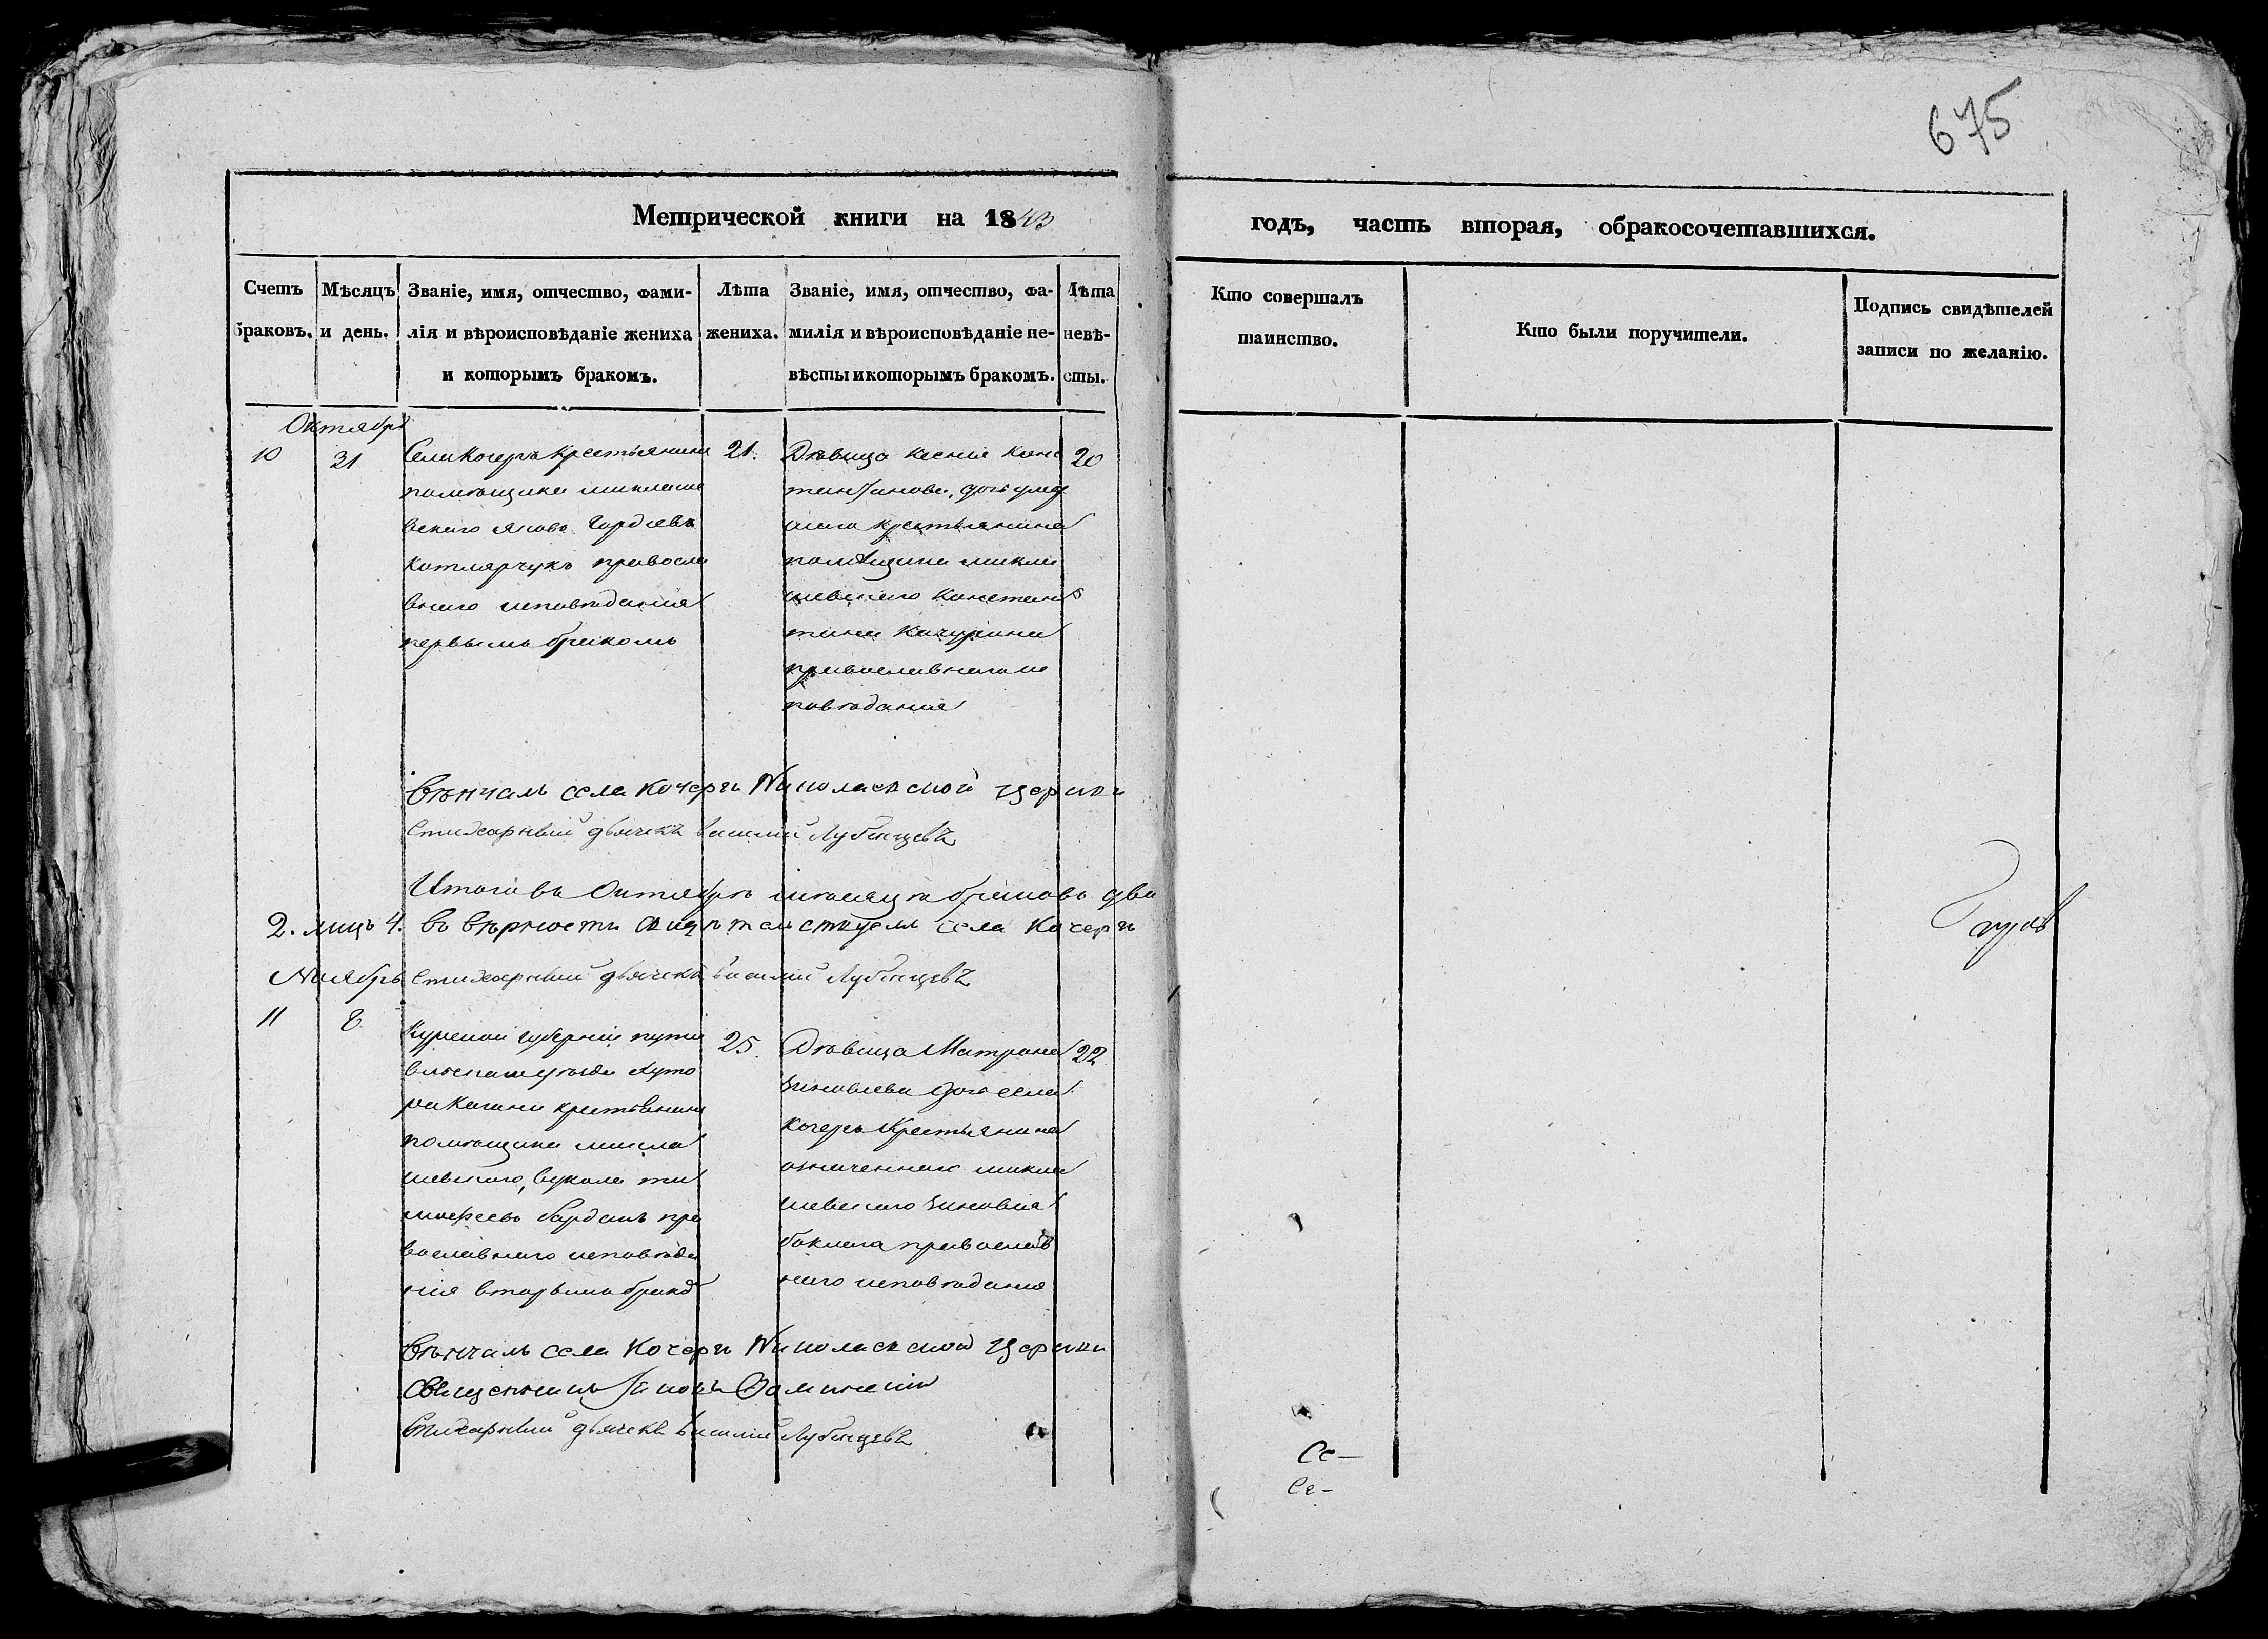 675
Метрической книги на 1843
годъ, часть вторая, обракосочетавшихся.
Счетъ браковъ.
Мѣсяцъ и день.
Званіе, имя, отчество, фами-
лія и вѣроисповѣданіе жениха
и которымъ бракомъ.
Лѣта
жениха.
Званіе, имя, отчество, фа-
милія и вѣроисповѣданіе не-
вѣсты и которымъ бракомъ.
Лѣта
невѣ-
сты.
Кто совершалъ
таинство.
Кто были поручители.
Подпись свидѣтелей
записи по желанію.
Октябрь
10
31
Села Кочергъ крестьянинъ
помѣщика миклаше
вскаго Яковъ Гордіевъ
Котлярчукъ правосла
внаго исповѣданія
первымъ бракомъ
21.
Дѣвица Ксенія Конс
тантинова, дочь умер
шаго крестьянина
помѣщика микла
шевскаго Констан
тина Качурина
православнаго ис
повѣданія
20
Вѣнчалъ села Кочергъ Николаевской церкви
Стихарный дьячекъ Василій Лубенцевъ
Итого въ Октябрѣ мѣсяцѣ браковъ два
2. лицъ 4. въ вѣрности свидѣтельствуемъ села Кочергъ
Ноябрь
Стихарный дьячекъ Василій Лубенцевъ
11
8
Курской губерніи пути
вльскаго уѣзда хуто
ра крестьянинъ
помѣщика микла
шевскаго, Вукола ти
мофеевъ пра
вославнаго исповѣда
нія вторымъ брако
25.
Дѣвица Матрона
Зиновіева дочь села
Кочергъ Крестьянина
означеннаго микла
шевскаго Зиновія
православ
наго исповѣданія
22
Вѣнчалъ села Кочергъ Николаевской церкви
Священникъ
Стихарный дьячекъ Василій Лубенцевъ
Се-
Се-